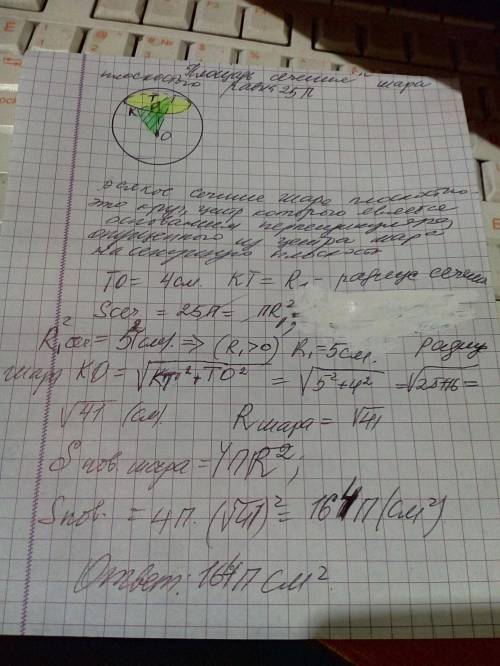 Площадь сечения шара
плоскостью равна 25π
T
K
O
всякое сечение шара плоскостью
это круг, центр которого является
основанием перпендикуляра,
опущенного из центра шара
на секущую плоскость
TO = 4 см. KT = R₁ - радиус сечения
Sсеч. = 25π = πR₁²
R₁² сеч = 5² (см). => (R₁>0) R₁ = 5 см. Радиус
шара KO = √KT² + TO² = √5² + 4² = √25+16 =
√41 (см). R шара = √41
S пов. шара = 4πR²;
Sпов. = 4π · (√41)² = 164π (см²)
Ответ: 164π см².